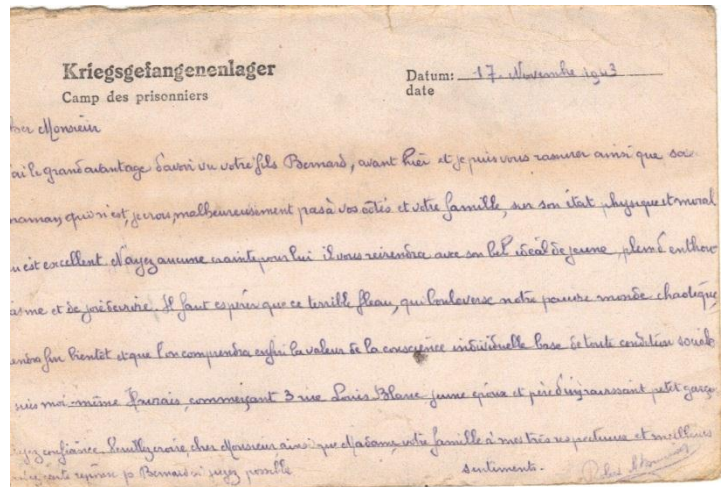 Kriegsgefangenenlager
Datum: 17. Novembre 1943
Camp des prisonniers
date
her Monsieur
'ai le grand avantage d'avoir vu votre fils Bernard, avant hier et je puis vous rassurer ainsi que sa
maman, qui n'est, je crois, malheureusement pas à vos côtés et votre famille, sur son état physique et moral
est excellent. N'ayez aucune crainte pour lui il vous reviendra avec son bel idéal de jeune, plein d'enthou
asme et de joie de vivre. Il faut espérer que ce terrible fleau, qui bouleverse notre pauvre monde chaotique,
endra fin bientôt et que l'on comprendra enfin la valeur de la conscience individuelle base de toute condition sociale
suis moi-même commerçant 3 rue Louis Blanc jeune époux et père d'un ravissant petit garçon
yez confiance. Veuillez croire, cher Monsieur, ainsi que Madame, votre famille à mes très respectueux et meilleurs
réponse pr Bernard si jugez possible
sentiments.